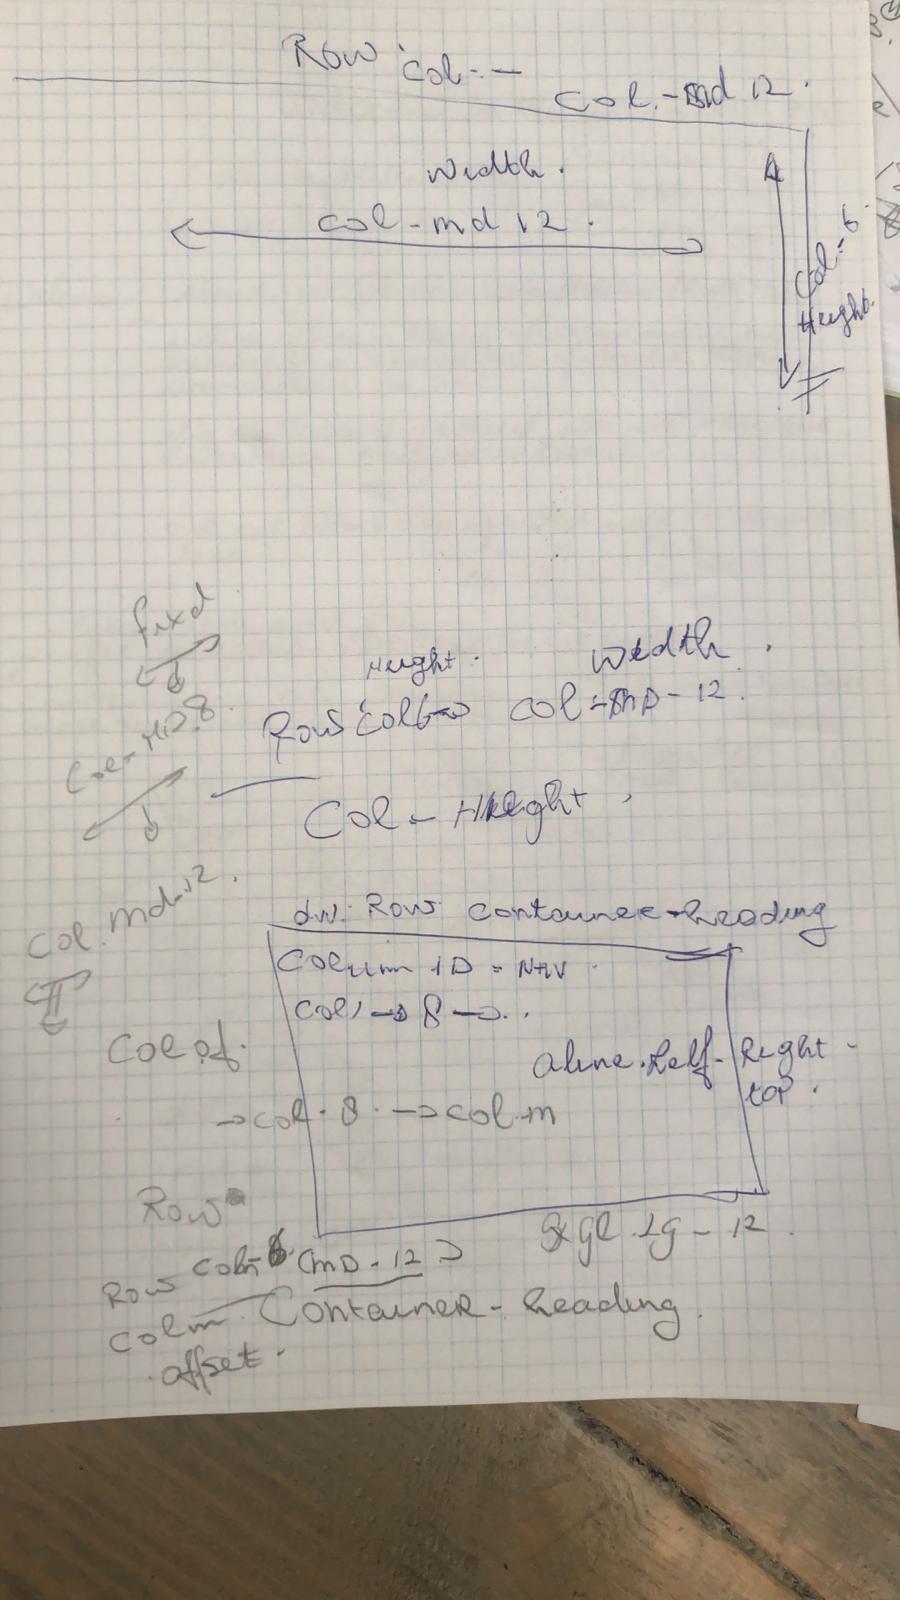 Row. Col -- —
Col - md 12.
Width.
Col - md 12.
Col - 6
Height.
fixd
Height.
Width.
Col - MD 8.
Row Col6 → Col - MD - 12.
Col - Height
Col. md-12.
div. Row Container-heading
Column ID = NAV.
Col → 8 → ..
Col of.
Aline.Self-Right-
top.
→ col. 8. → col. m
Row
lg - 12.
Row Col - 6 (MD - 12)
Colm Container - heading.
offset.